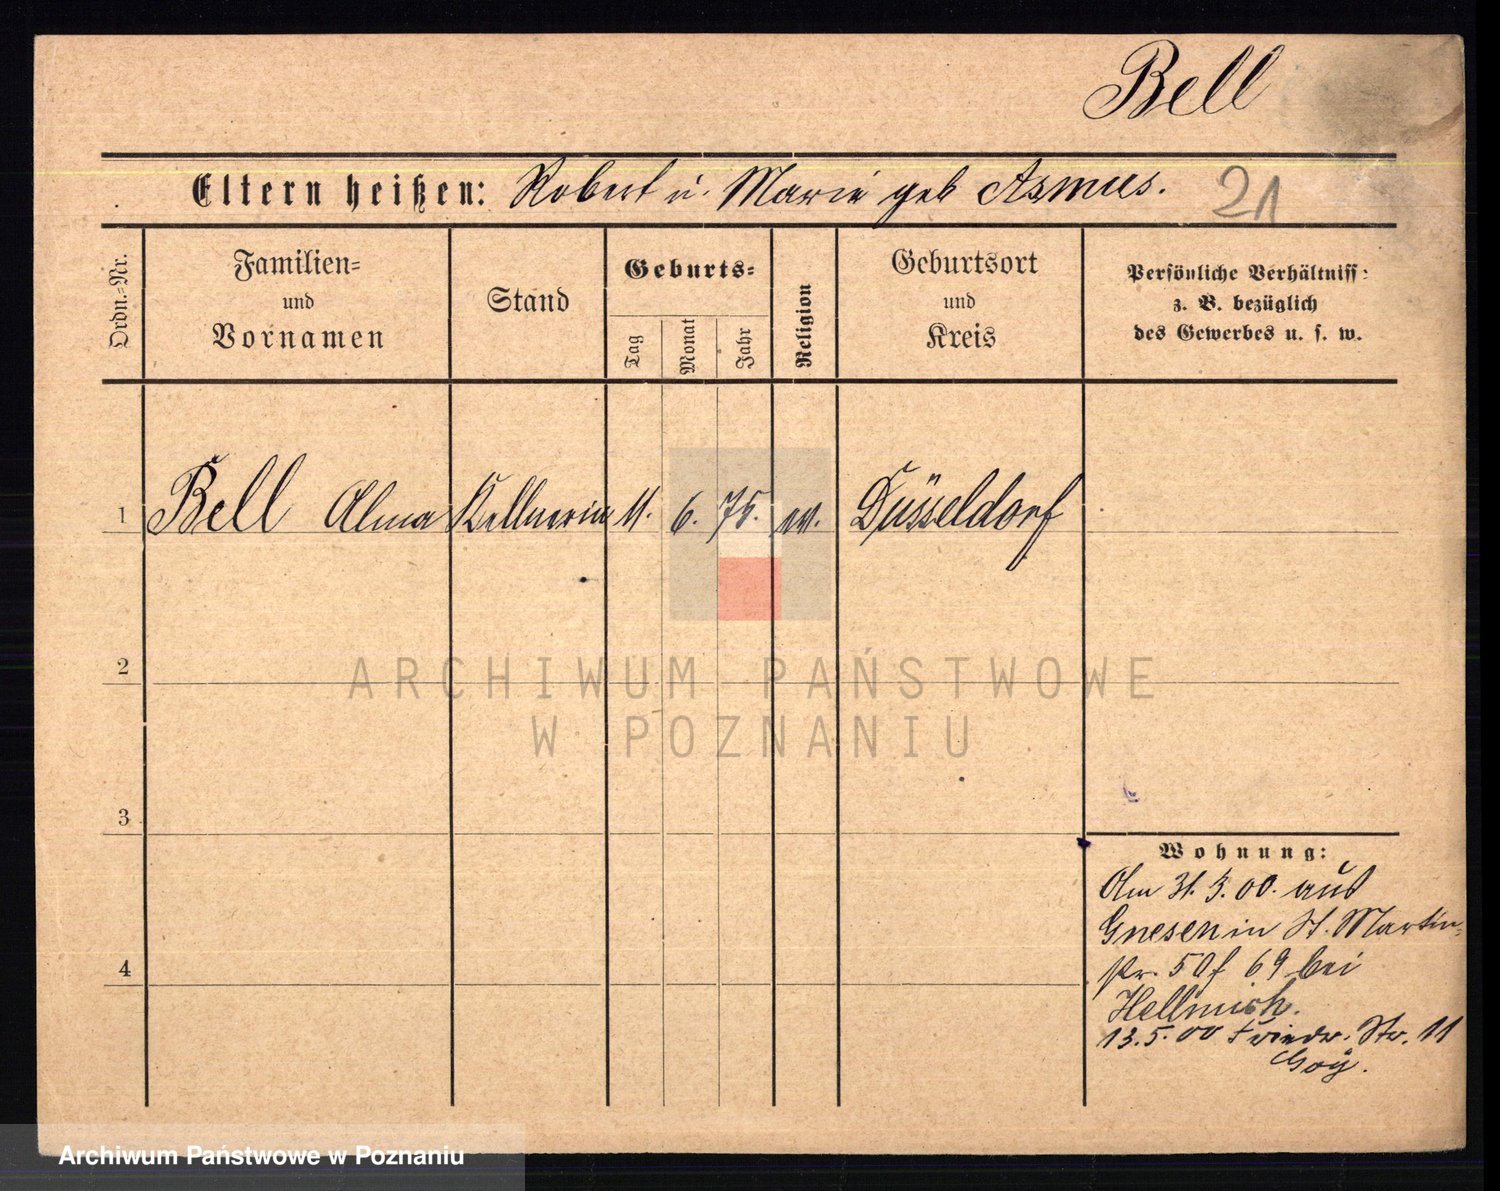 Bell
Eltern heißen: Robert u. Marie geb Asmus.
21
Ordn.=Nr.
Familien=
und
Vornamen
Stand
Geburts=
Tag
Monat
Jahr
Religion
Geburtsort
und
Kreis
Persönliche Verhältniss:
z. B. bezüglich
des Gewerbes u. s. w.
1 Bell Alma Kellnerin 11. 6. 75. ev. Düsseldorf
2
3
4
Wohnung:
Am 31. 3. 00. aus
Gnesen in St. Martin-
str. 50/ 69 bei
Hellmich.
13.5.00 Friedr. Str. 11
ARCHIWUM PAŃSTWOWE
W POZNANIU
Archiwum Państwowe w Poznaniu